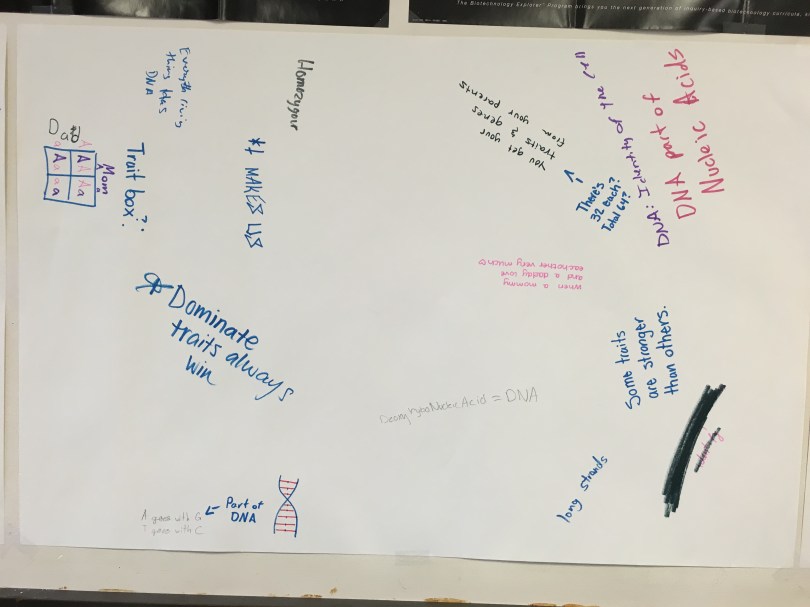 The Biotechnology Explorer Program brings you the next generation of inquiry-based biotechnology curricula,
Everything living
thing has
DNA
Homozygour
Dad
Mom
A A
a a
A A
A a
A a
a a
Trait box?
*| MAKES US
* Dominate
traits always
win
you get your
traits & genes
from your parents
There's
32 each?
Total 64?
DNA: Identity of the cell
DNA part of
Nucleic Acids
when a mommy
and a daddy love
eachother very much
Some traits
are stronger
than others.
NucleicAcid = DNA
long strands
Part of
DNA
A goes with G
T goes with C